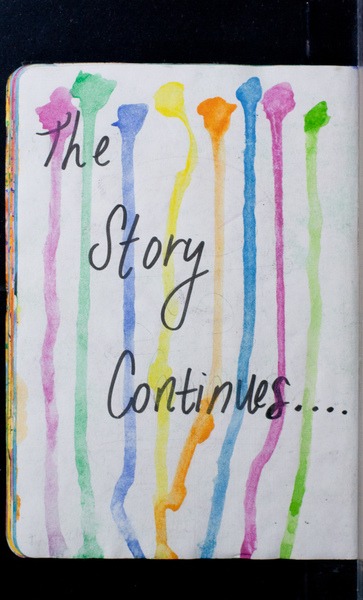 The
Story
Continues....